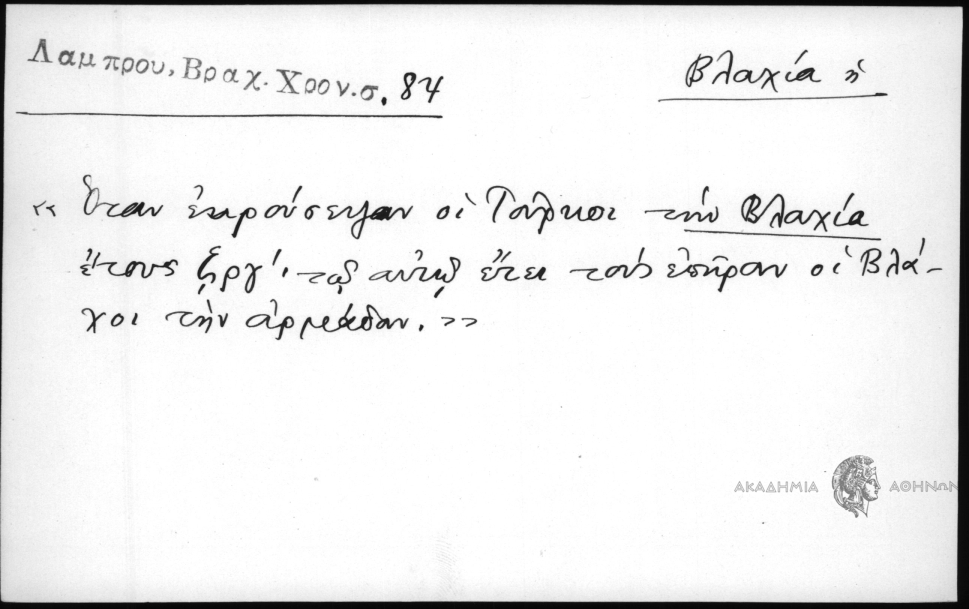 Λαμπρου, Βραχ. Χρον.σ. 84
Βλαχία ἡ
« Ὅταν ἐκρούσευσαν οἱ Τοῦρκοι τὴν Βλαχία
ἔτους ϛϡογ΄. τῷ αὐτῷ ἔτει τοὺς ἐπῆραν οἱ Βλά-
χοι τὴν ἀρμάδαν. »
ΑΚΑΔΗΜΙΑ ΑΘΗΝΩΝ